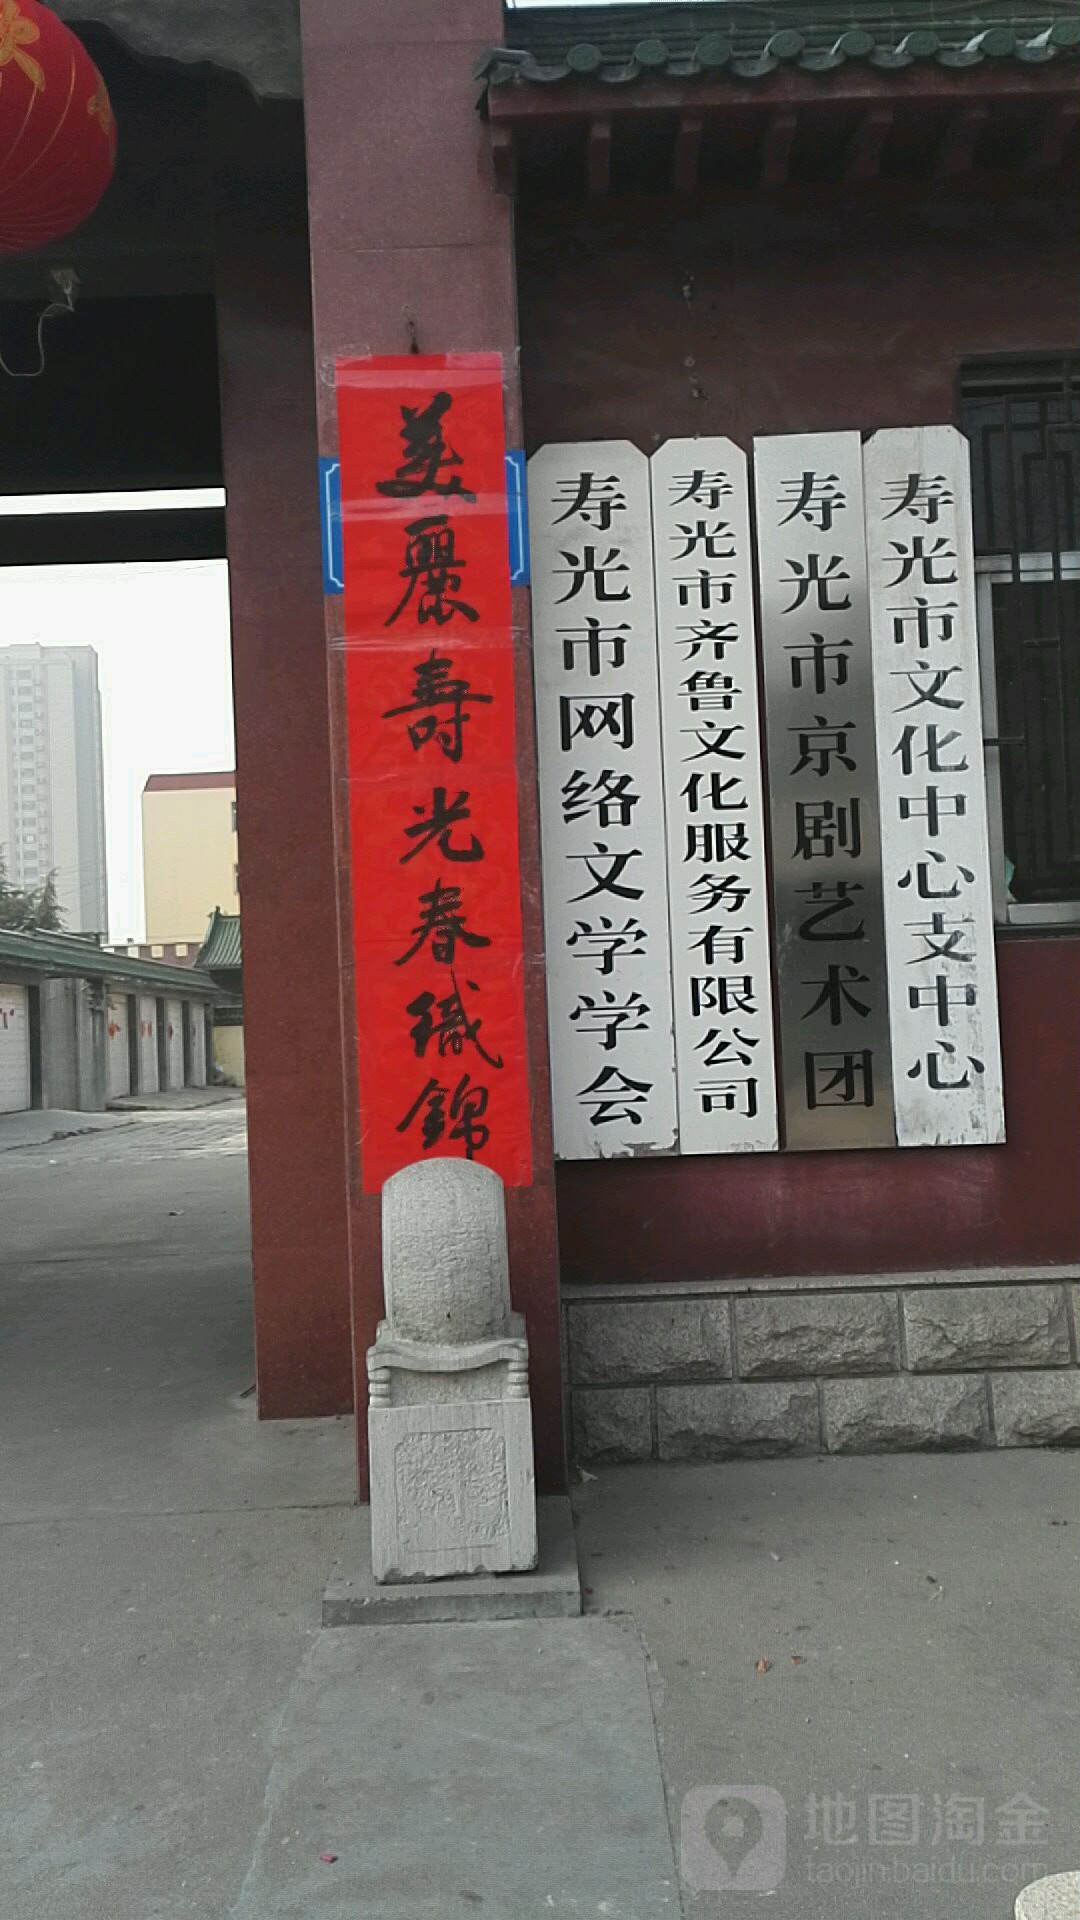 美麗壽光春織錦
寿光市网络文学学会
寿光市齐鲁文化服务有限公司
寿光市京剧艺术团
寿光市文化中心支中心
地图淘金
taojin.baidu.com